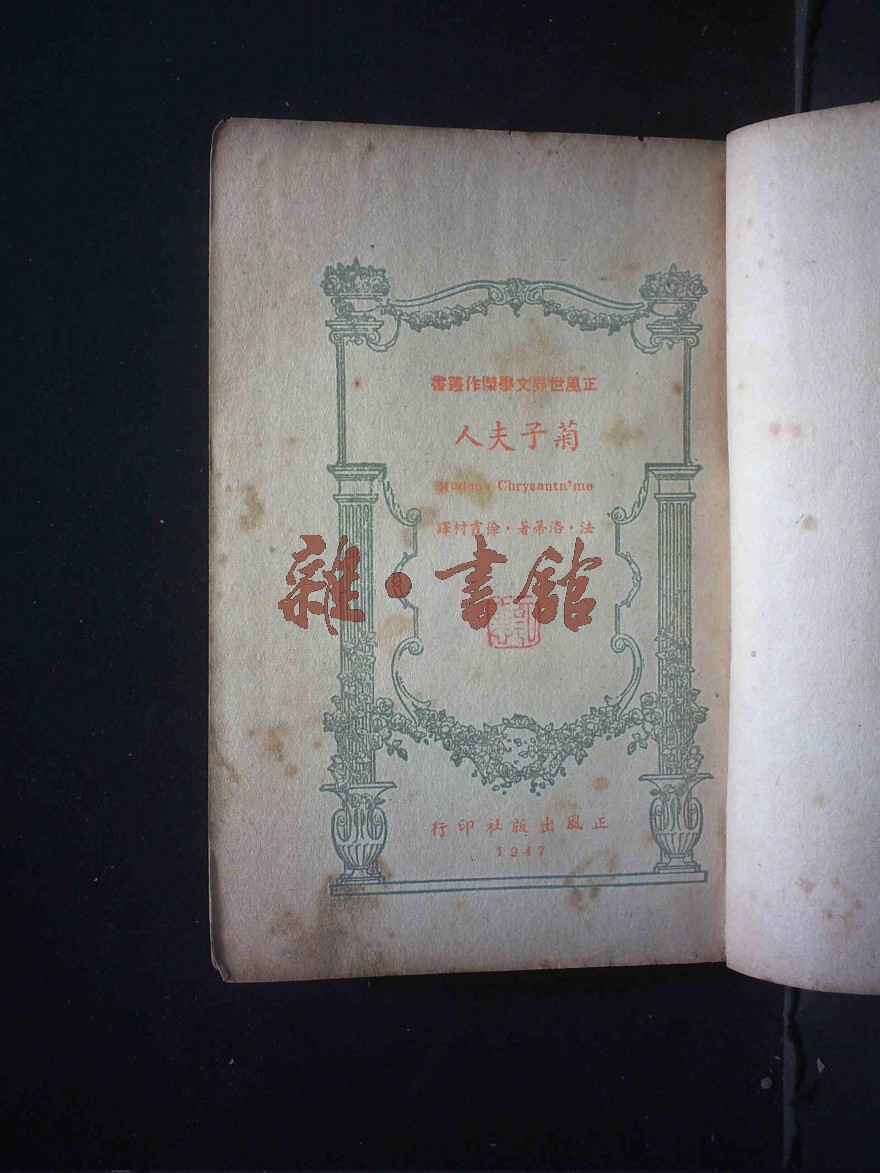 正風世界文學傑作叢書
菊子夫人
Madame Chrysantn'me
法·洛蒂著·徐霞村譯
雜·書館
正風出版社印行
1947